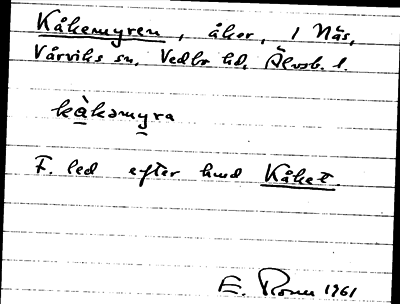 Kåkemyren, åker, 1 Näs,
Vårviks sn, Vedbo hd, Älvsb. l.
kàkəmyra
F. led efter hmd Kåket.
E. Rosen 1961